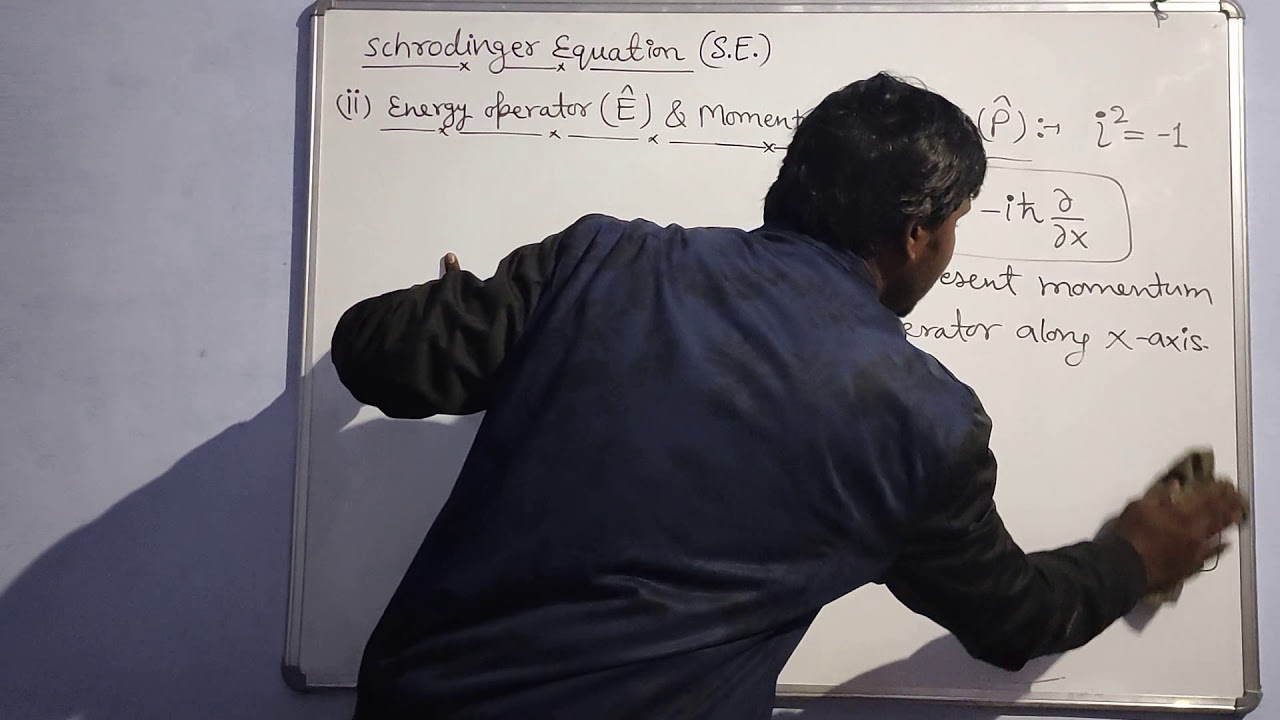 Schrodinger Equation (S.E.)
(ii) Energy operator (Ê) & Moment (P̂) :- i² = -1
-iħ ∂/∂x
esent momentum
erator along x-axis.